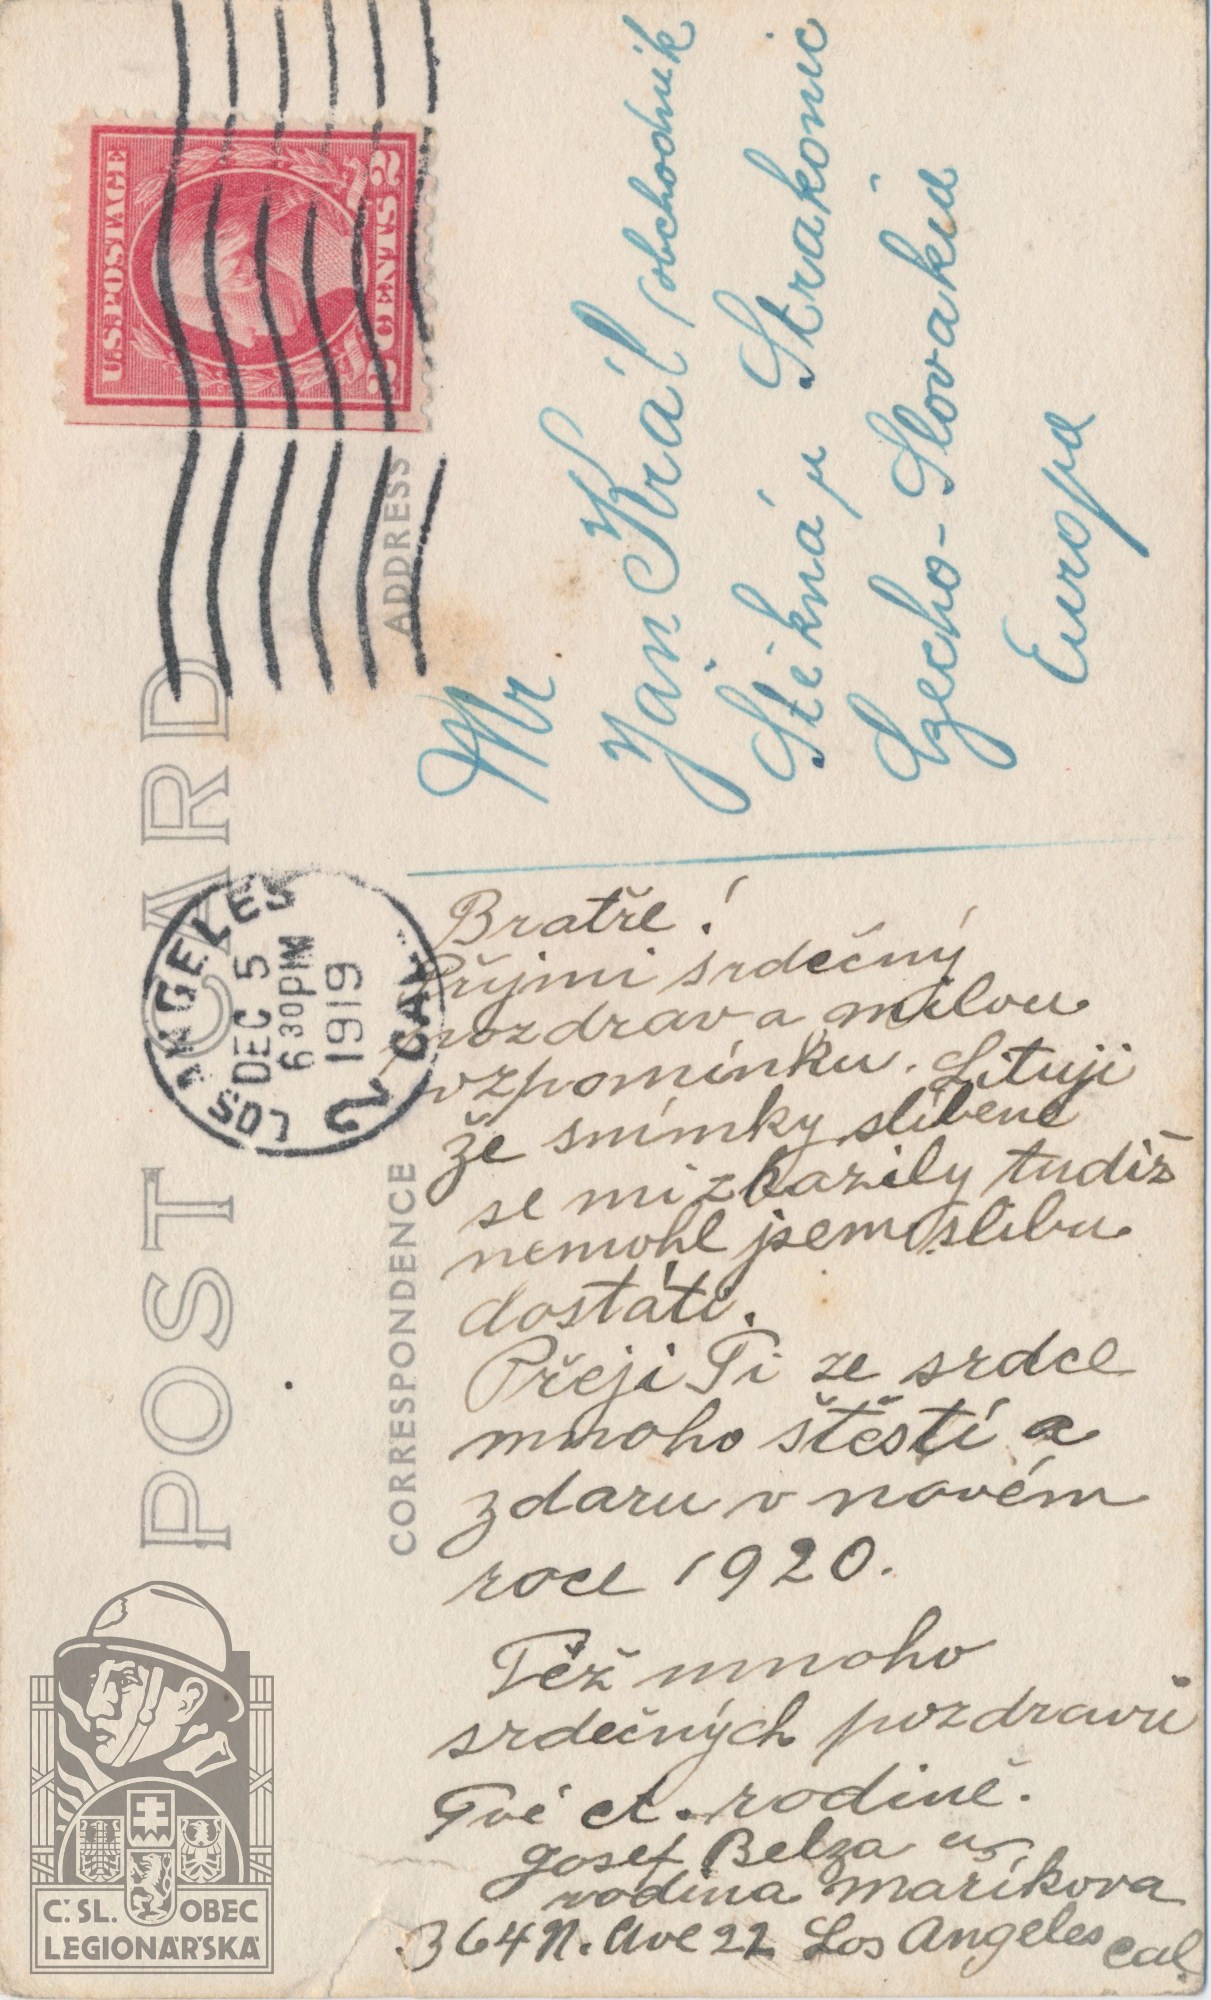 POST CARD
U.S. POSTAGE
2 CENTS 2
LOS ANGELES
DEC 5
6 30 PM
1919
2 CAL.
CORRESPONDENCE
ADDRESS
Bratře!
Přijmi srdečný
pozdrav a milou
vzpomínku. Lituji
že snímky slíbené
se mi zkazily tudiž
nemohl jsem slibu
dostáti.
Přeji Ti ze srdce
mnoho štěstí a
zdaru v novém
roce 1920.
Též mnoho
srdečných pozdravů
Tvé ct. rodině.
Josef Belza a
rodina Maříkova
364 N. Ave 22 Los Angeles Cal.
Mr
Jan Král obchodník
Štěkná u Strakonic
Czecho-Slovakia
Europa
Č. SL. OBEC
LEGIONÁŘSKÁ